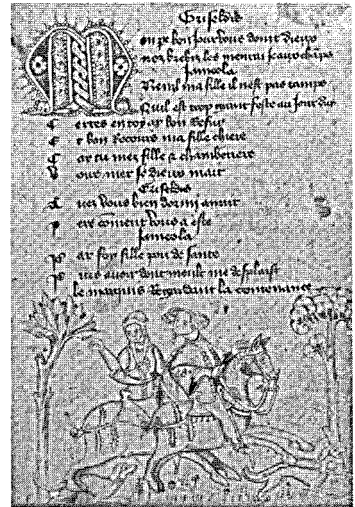 Griseldis
Mon pe bon jour vous doint dieux
brebis les menrai champs
Janicola
Nenil ma fille il nest pas tamps
Quil est trop grant feste au jour dui
Certes en toy ay bon Refuy
Et bon Recours ma fille chiere
Car tu mez fille & chamberiere
se dieux mait
Griseldis
Avez vous bien dormi anuit
Pere coment vous a este
Janicola
Par foy fille poy de sante
Puis avoir dont moult me desplaist
le marquis Regardant la contenance